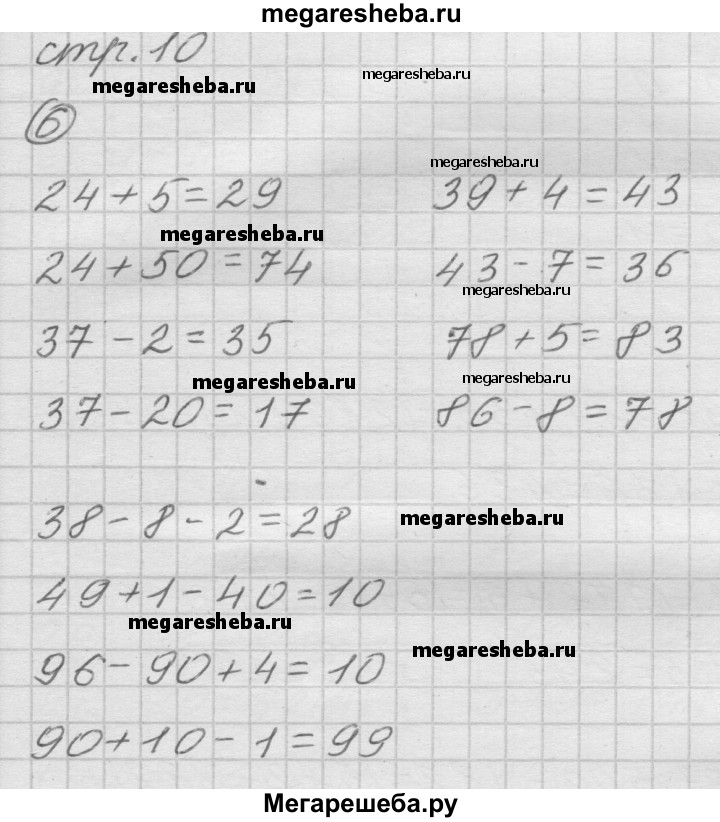 megaresheba.ru
стр. 10
megaresheba.ru
megaresheba.ru
6
megaresheba.ru
24+5=29 39+4=43
megaresheba.ru
24+50=74 43-7=36
megaresheba.ru
37-2=35 78+5=83
megaresheba.ru megaresheba.ru
37-20=17 86-8=78
38-8-2=28 megaresheba.ru
49+1-40=10
megaresheba.ru
96-90+4=10 megaresheba.ru
90+10-1=99
Мегарешеба.ру